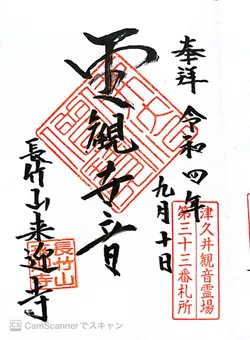 奉拝
令和四年
九月十日
聖観世音
長竹山来迎寺
津久井観音霊場
第三十三番札所
長竹山
来迎寺
CS CamScannerでスキャン